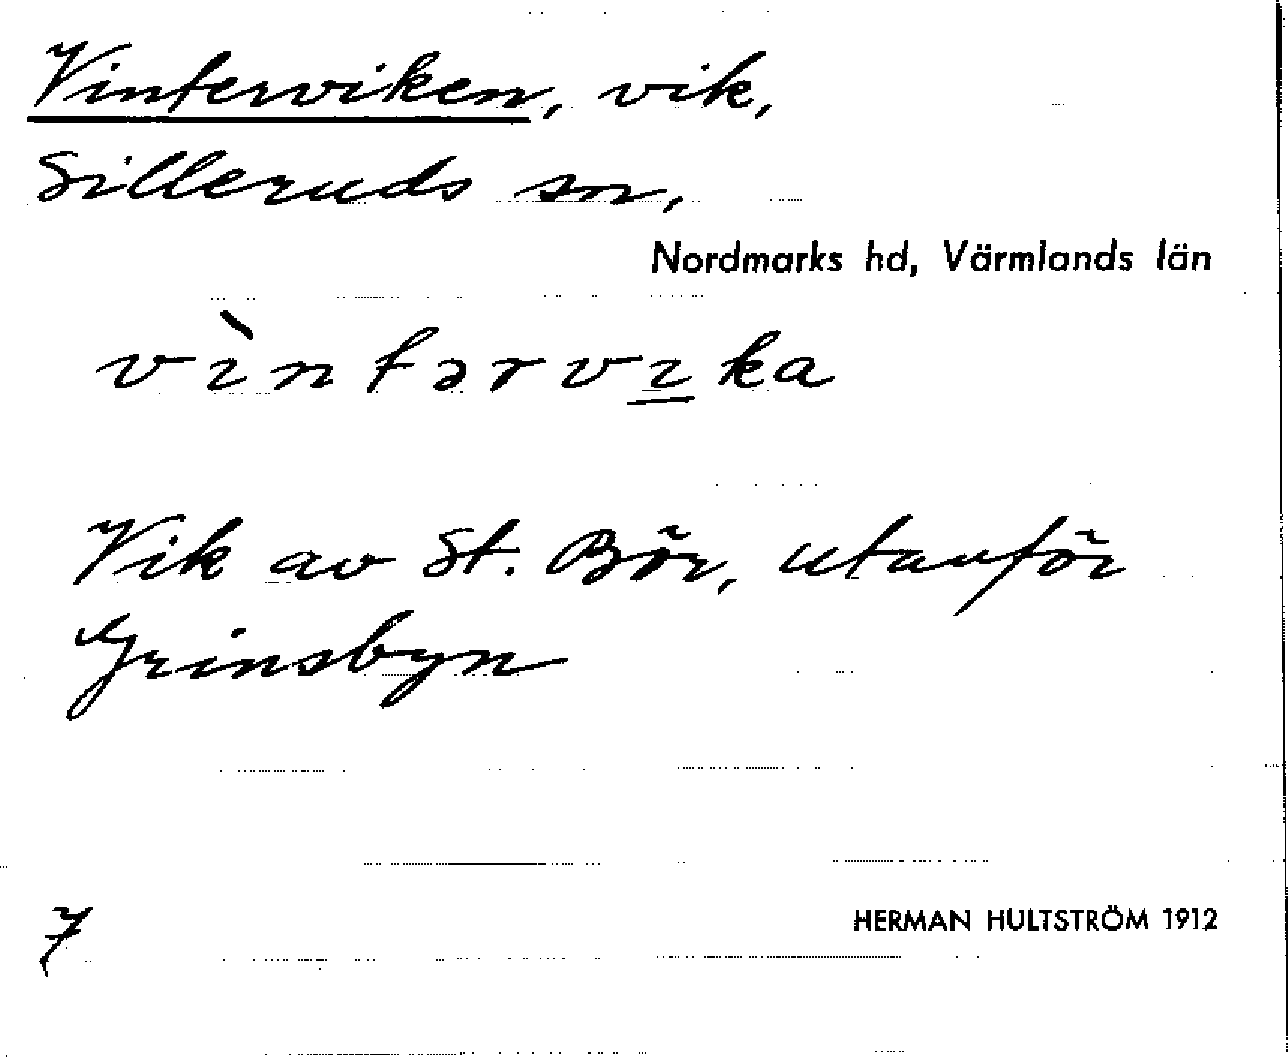 Vinterviken, vik,
Silleruds sn,
Nordmarks hd, Värmlands län
vìntərvıka
Vik av St. Bör, utanför
Grinsbyn
7
HERMAN HULTSTRÖM 1912